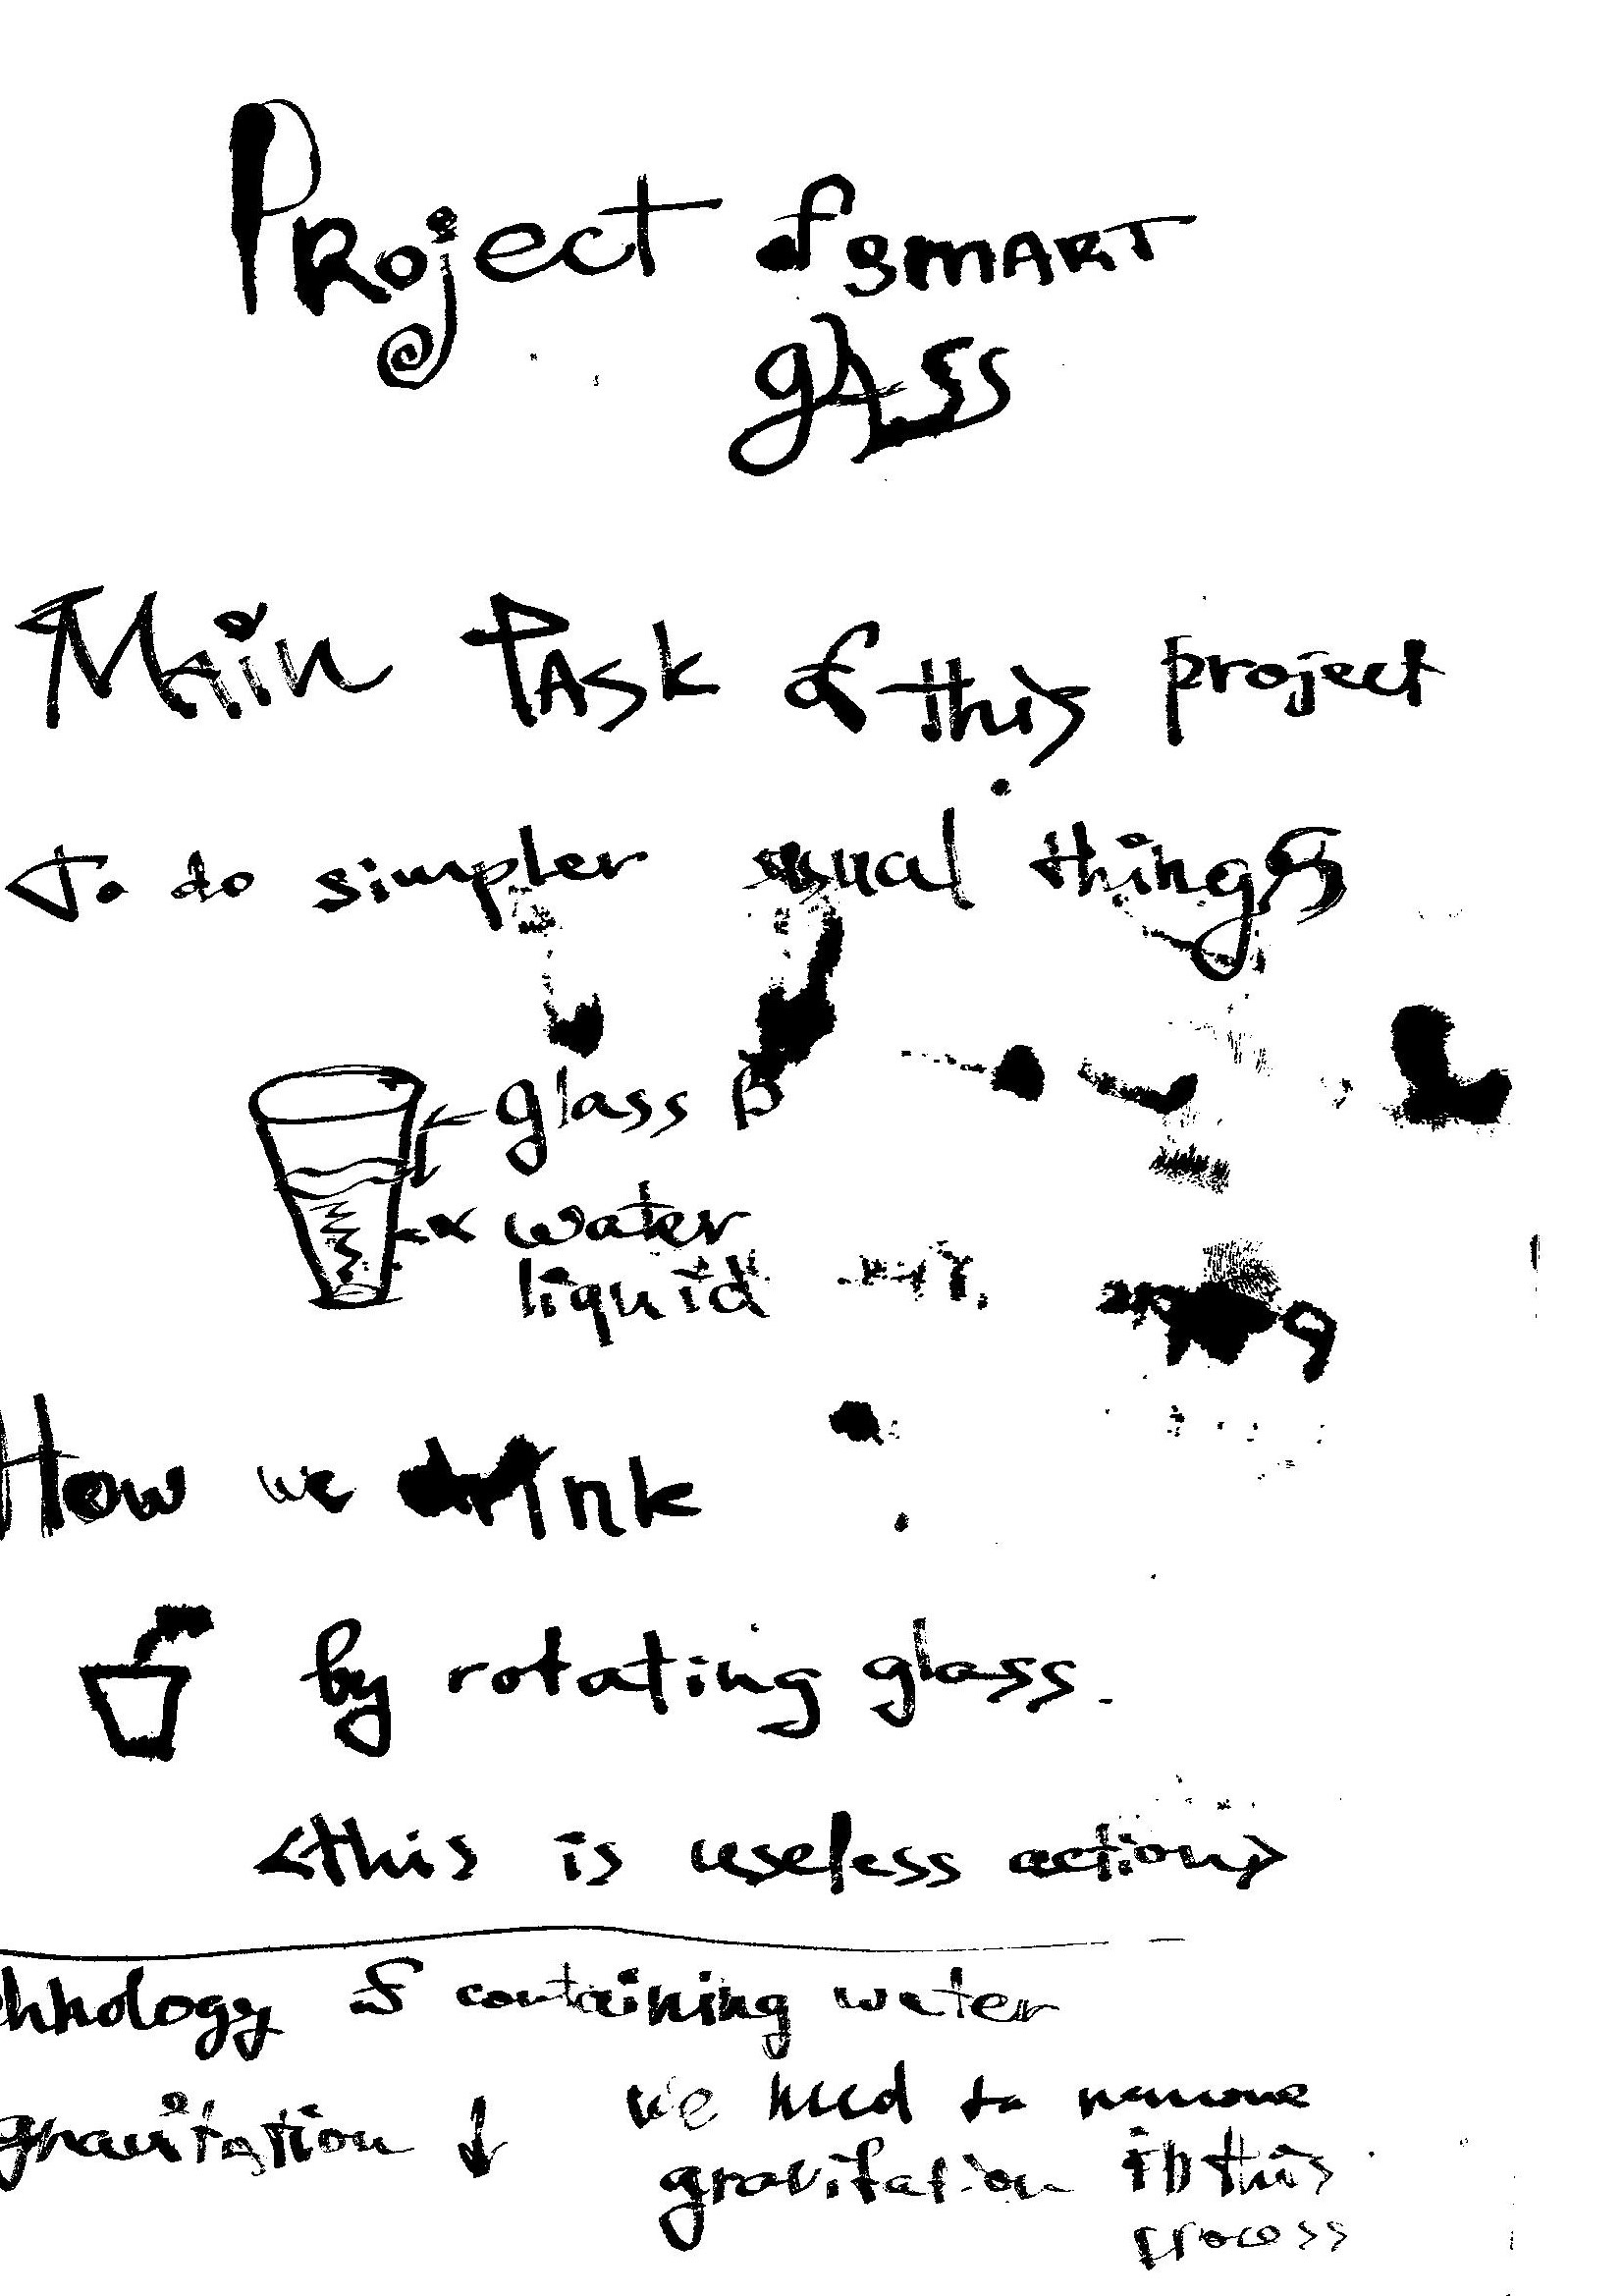 Project of smart
glass
Main Task of this project
To do simpler usual things
glass
water
liquid
How we drink
by rotating glass.
<this is useless action>
chnology of containing water
gravitation ↓ we need to remove
gravitation in this
process